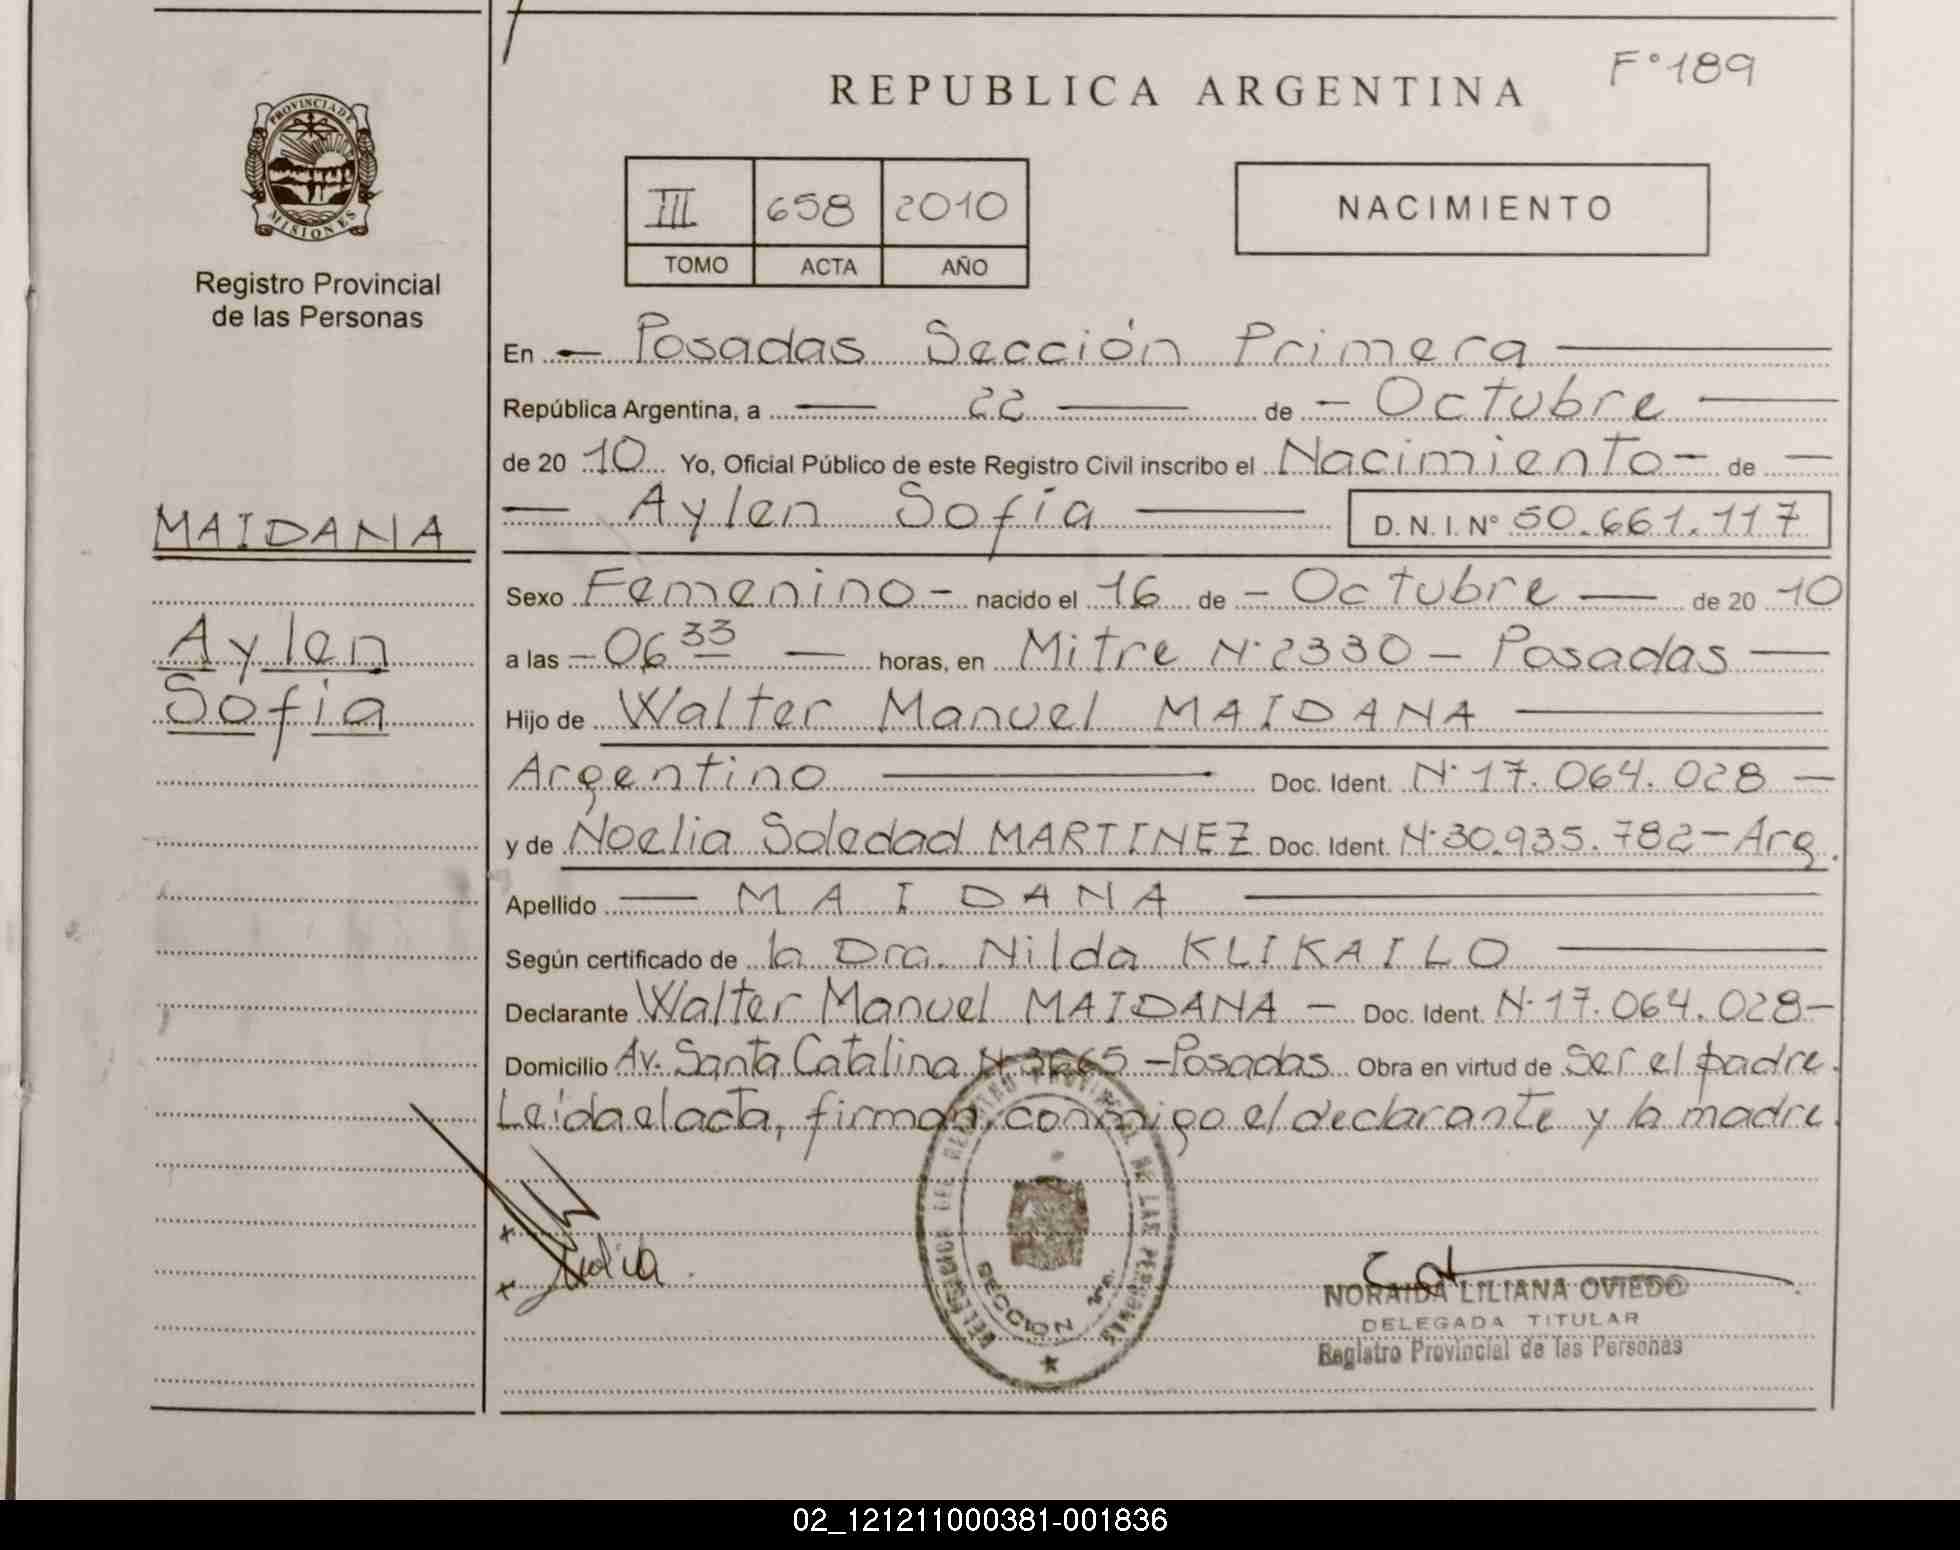 F° 189
REPUBLICA ARGENTINA
PROVINCIA DE MISIONES
Registro Provincial
de las Personas
III 658 2010
TOMO ACTA AÑO
NACIMIENTO
En Posadas Sección Primera
República Argentina, a 22 de Octubre
de 2010 Yo, Oficial Público de este Registro Civil inscribo el Nacimiento de
Aylen Sofía D.N.I. N° 50.661.117
MAIDANA
Aylen
Sofía
Sexo Femenino nacido el 16 de Octubre de 2010
a las 06 33 horas, en Mitre N° 2330 - Posadas
Hijo de Walter Manuel MAIDANA
Argentino Doc. Ident. N° 17.064.028
y de Noelia Soledad MARTINEZ Doc. Ident. N° 30.935.782 - Arg.
Apellido MAIDANA
Según certificado de la Dra. Nilda KLIKAILO
Declarante Walter Manuel MAIDANA - Doc. Ident. N° 17.064.028 -
Domicilio Av. Santa Catalina N° - Posadas Obra en virtud de ser el padre.
Leída el acta, firman conmigo el declarante y la madre.
NORAIDA LILIANA OVIEDO
DELEGADA TITULAR
Registro Provincial de las Personas
DEL REGISTRO PROVINCIAL DE LAS PERSONAS
SECCION
02_121211000381-001836